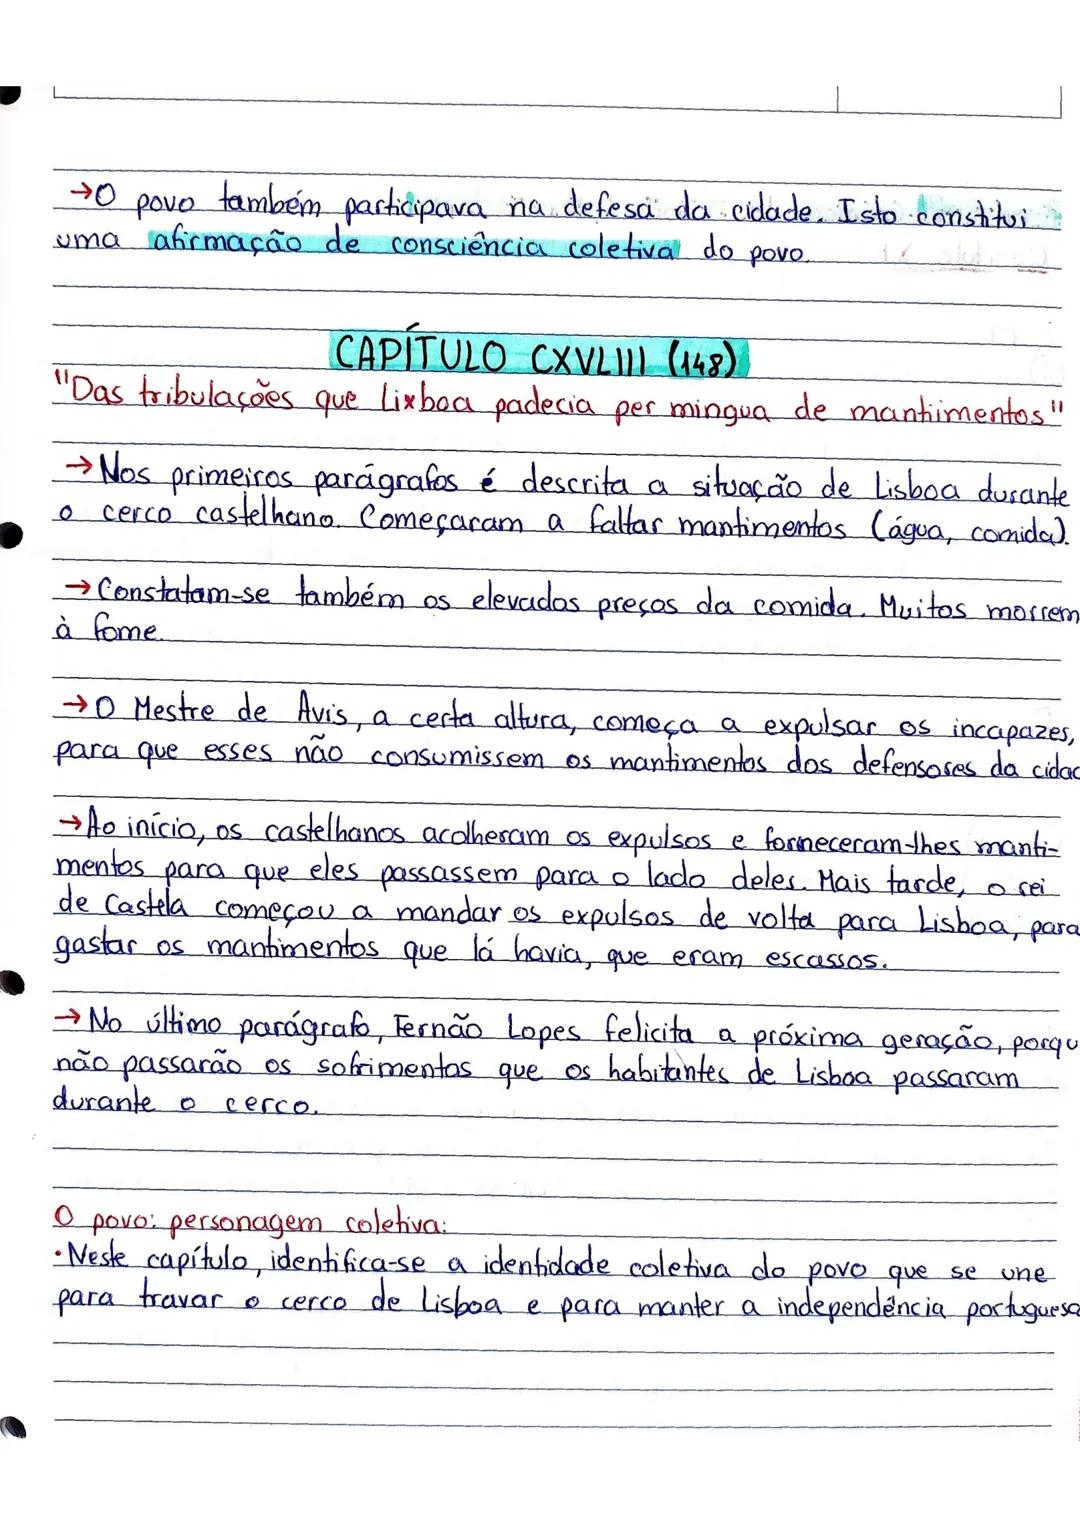 →O povo também participava na defesa da cidade. Isto constitui
uma afirmação de consciência coletiva do povo.
CAPÍTULO CXVLIII (148)
"Das tribulações que Lixboa padecia per mingua de mantimentos"
→Nos primeiros parágrafos é descrita a situação de Lisboa durante
o cerco castelhano. Começaram a faltar mantimentos (água, comida).
→Constatam-se também os elevados preços da comida. Muitos morrem
à fome.
→O Mestre de Avis, a certa altura, começa a expulsar os incapazes,
para que esses não consumissem os mantimentos dos defensores da cidad
→Ao início, os castelhanos acolheram os expulsos e forneceram-lhes manti-
mentos para que eles passassem para o lado deles. Mais tarde, o rei
de Castela começou a mandar os expulsos de volta para Lisboa, para
gastar os mantimentos que lá havia, que eram escassos.
→No último parágrafo, Fernão Lopes felicita a próxima geração, porqu
não passarão os sofrimentos que os habitantes de Lisboa passaram
durante o cerco.
O povo: personagem coletiva:
·Neste capítulo, identifica-se a identidade coletiva do povo que se une
para travar o cerco de Lisboa e para manter a independência portuguesa